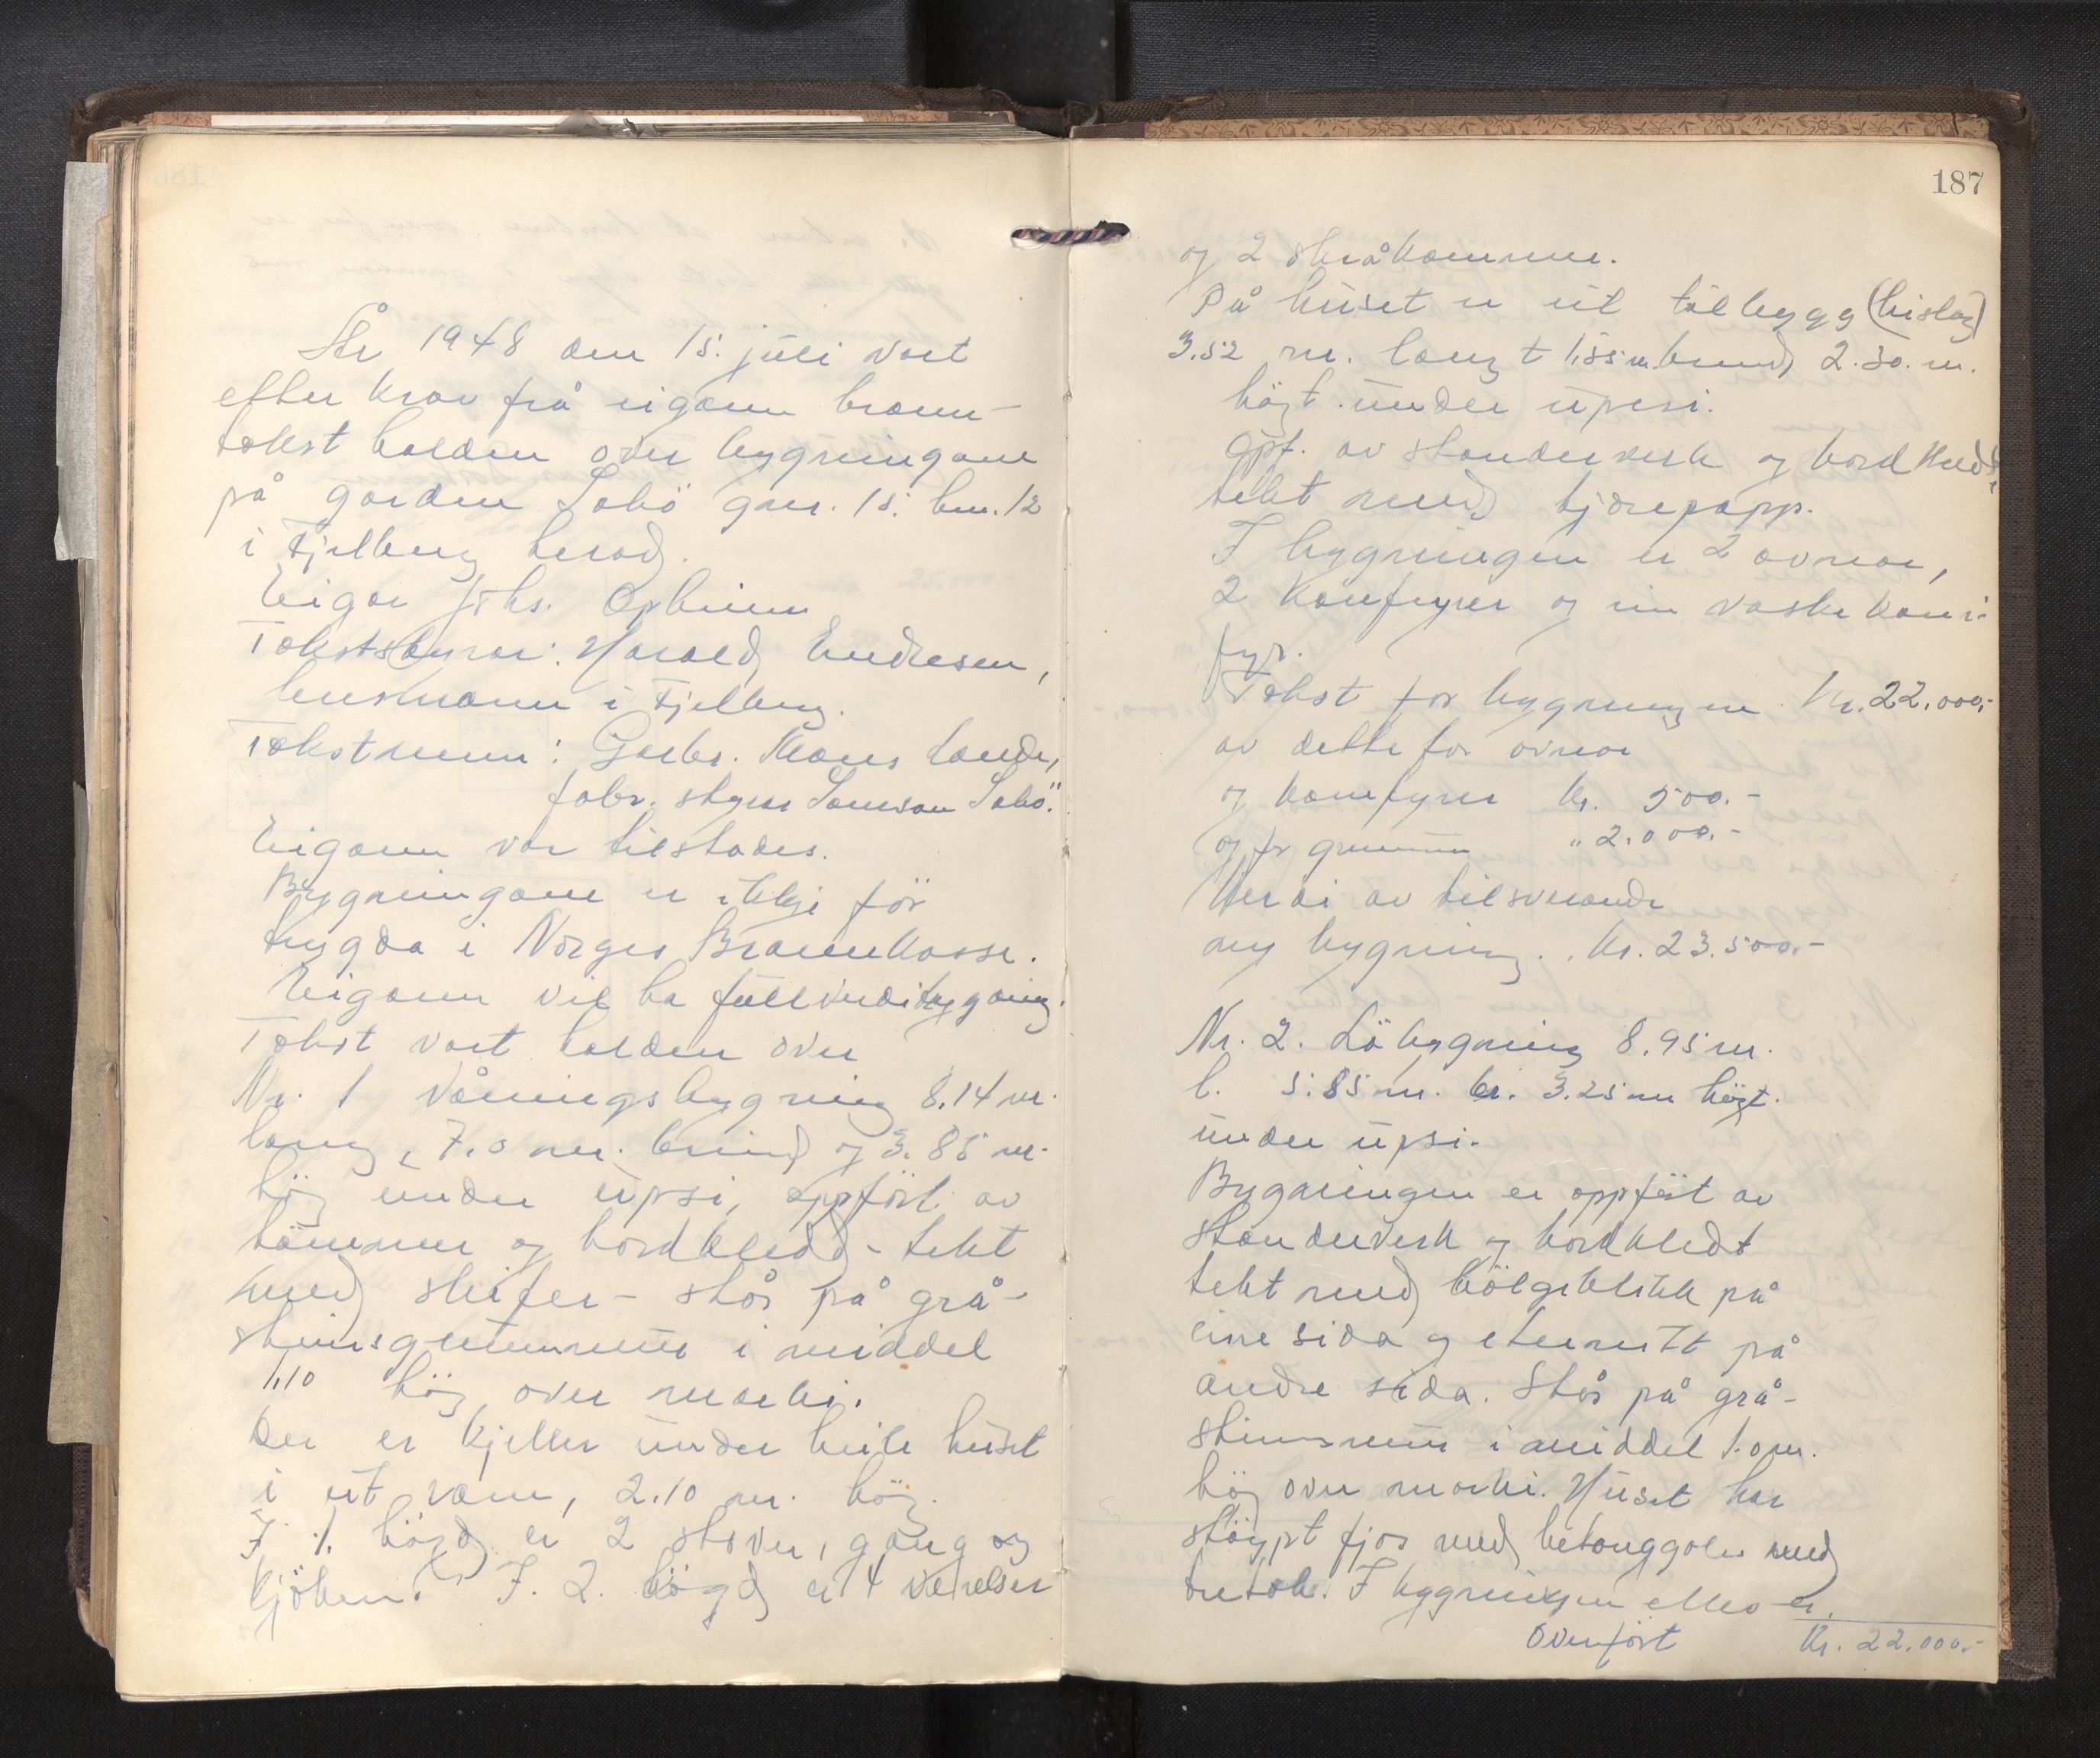 År 1948 den 15. juli vart
etter krav frå eigaren brann-
takst halden over bygningane
på garden Sæbö gnr. 15. bnr. 12
i Fjelberg herad.
Eigar Johs. Opheim
Takststyrar: Harald Endresen,
lensmann i Fjelberg.
Takstmenn: Gardbr. Mons Lande,
fabr. styrar Samson Sæbö.
Eigaren var tilstades.
Bygningane er ikkje för
trygda i Norges Brannkasse.
Eigaren vil ha fullverditrygding.
Takst vart halden over
Nr. 1 Våningsbygning 8,14 m.
lang, 7,0 m. breid og 3.85 m.
hög under upsi, oppfört av
tömmer og bordkledd - tekt
med skifer - står på grå-
steinsgrunnmur i middel
1,10 hög over marki.
Der er kjeller under heile huset
i eit rom, 2.10 m. hög.
I 1. högd er 2 stover, gang og
kjöken. I. 2. högd er 4 værelser
187
og 2 skråkammer.
På huset er eit tilbygg (bislag)
3.52 m. langt 1,55 m. breid, 2.30. m.
högt under upsi.
Opf. av standerverk og bordkledt,
tekt med tjærepapp.
I bygningen er 2 ovnar,
2 komfyrer og ein vaskekom-
fyr.
Takst for bygningen Kr. 22.000,-
av dette for ovnar
og komfyrer Kr. 500.-
og for grunnmur " 2.000.-
Verdi av tilsvarande
ny bygning. . Kr. 23.500.-
Nr. 2. Löbygning 8.95 m.
l. 5.85 m. br. 3.25 m högt.
under upsi.
Bygningen er oppfört av
standerverk og bordkledt
tekt med bölgeblikk på
eine sida og eternitt på
andre sida. Står på grå-
steinsmur i middel 1.0 m.
hög over marki. Huset har
stöypt fjös med betonggolv med
tretak. I bygningen elles er.
Overfört Kr. 22.000.-